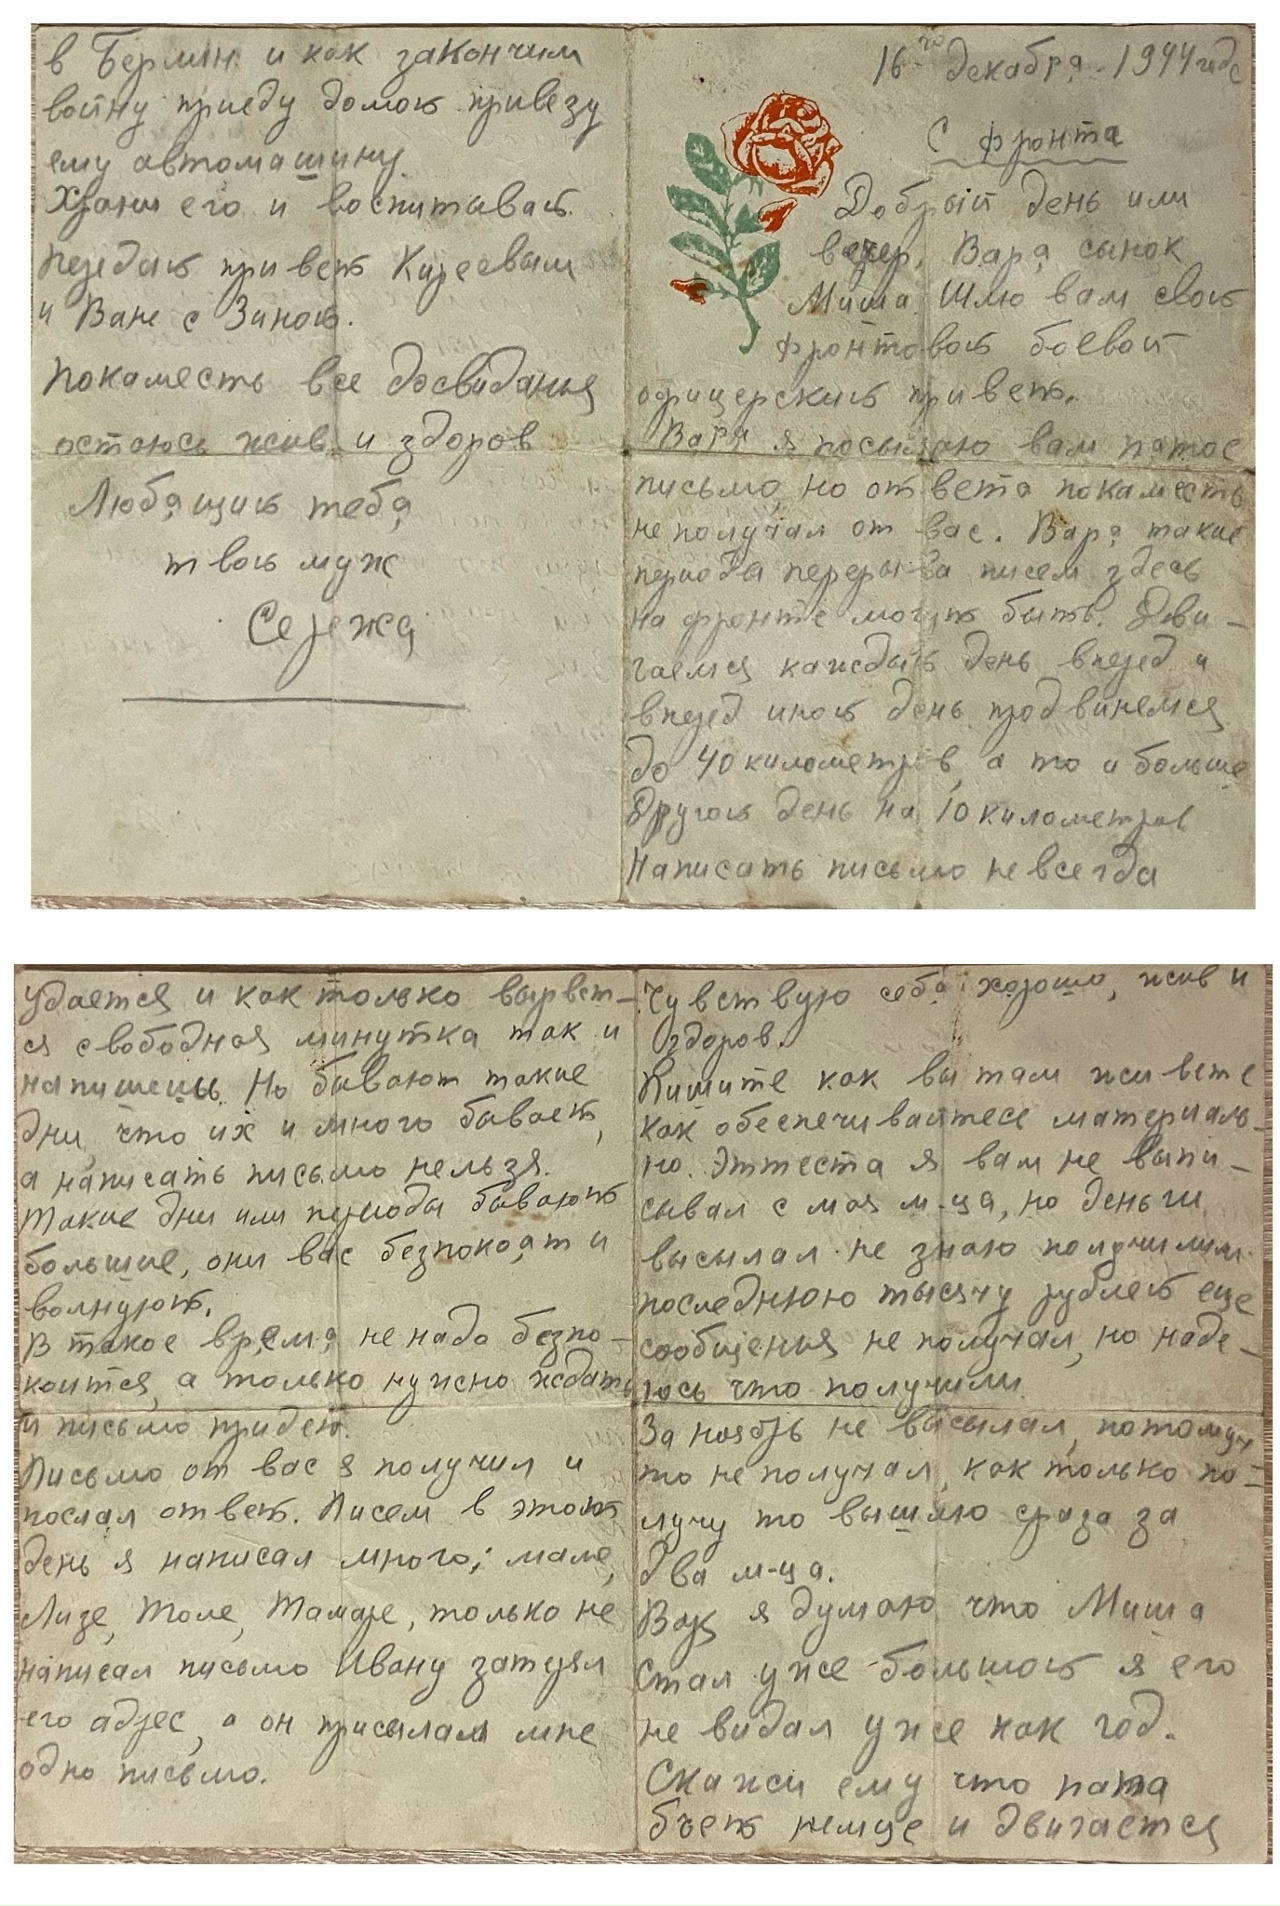 16го декабря 1944 годе
С фронта
Добрый день или
вечер, Варя сынок
Миша. Шлю вам свой
фронтовой боевой
офицерский привет.
Варя я посылаю вам пятое
письмо, но ответа покаместь
не получал от вас. Варя такие
периода перерыва писем здесь
на фронте могут быть. Дви-
гаемся каждый день вперед и
вперед иной день продвинемся
до 40 километров, а то и больше
другой день на 10 километров
Написать письмо не всегда
удается и как только вырвет-
ся свободная минутка так и
напишешь. Но бывают такие
дни, что их и много бывает,
а написать письмо нельзя.
Такие дни или периоды бывают
большие, они вас безпокоят и
волнуют.
В такое время не надо безпо-
коится, а только нужно ждать
и письмо придет.
Письмо от вас я получил и
послал ответ. Писем в этот
день я написал много; маме,
Лизе, Толе, Тамаре, только не
написал письмо Ивану затерял
его адрес, а он присылал мне
одно письмо.
Чувствую себя хорошо, жив и
здоров.
Пишите как вы там живете
как обеспечивайтесе материаль-
но. Эттеста я вам не выпи-
сывал с мая м-ца, но деньги
высылал не знаю получили ли
последнюю тысячу рублей еще
сообщения не получал, но наде-
юсь что получили
За ноябрь не высылал, потомуч
то не получал, как только по-
лучу то вышлю сразу за
два м-ца.
Варя я думаю что Миша
стал уже большой я его
не видал уже как год.
Скажи ему что папа
бъет немце и двигается
в Берлин и как закончим
войну приеду домой привезу
ему автомашину.
Храни его и воспитывай.
Передай привет Киреевым
и Ване с Зиной.
Покаместь все досвиданья
остаюсь жив и здоров
Любящий тебя
твой муж
Сережа